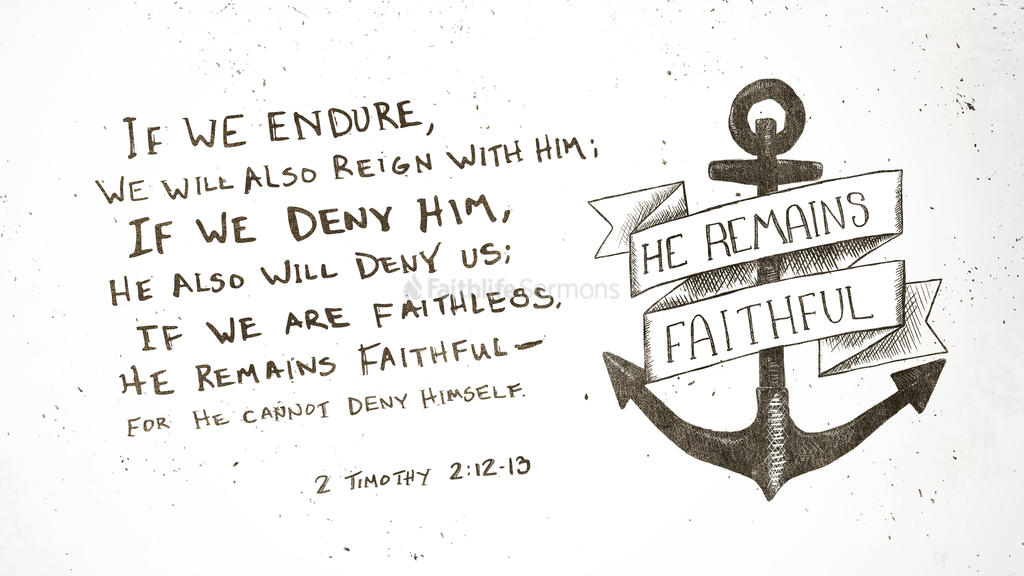 IF WE ENDURE,
WE WILL ALSO REIGN WITH HIM;
IF WE DENY HIM,
HE ALSO WILL DENY US;
IF WE ARE FAITHLESS,
HE REMAINS FAITHFUL—
FOR HE CANNOT DENY HIMSELF.
2 TIMOTHY 2:12-13
HE REMAINS
FAITHFUL
FaithlifeSermons